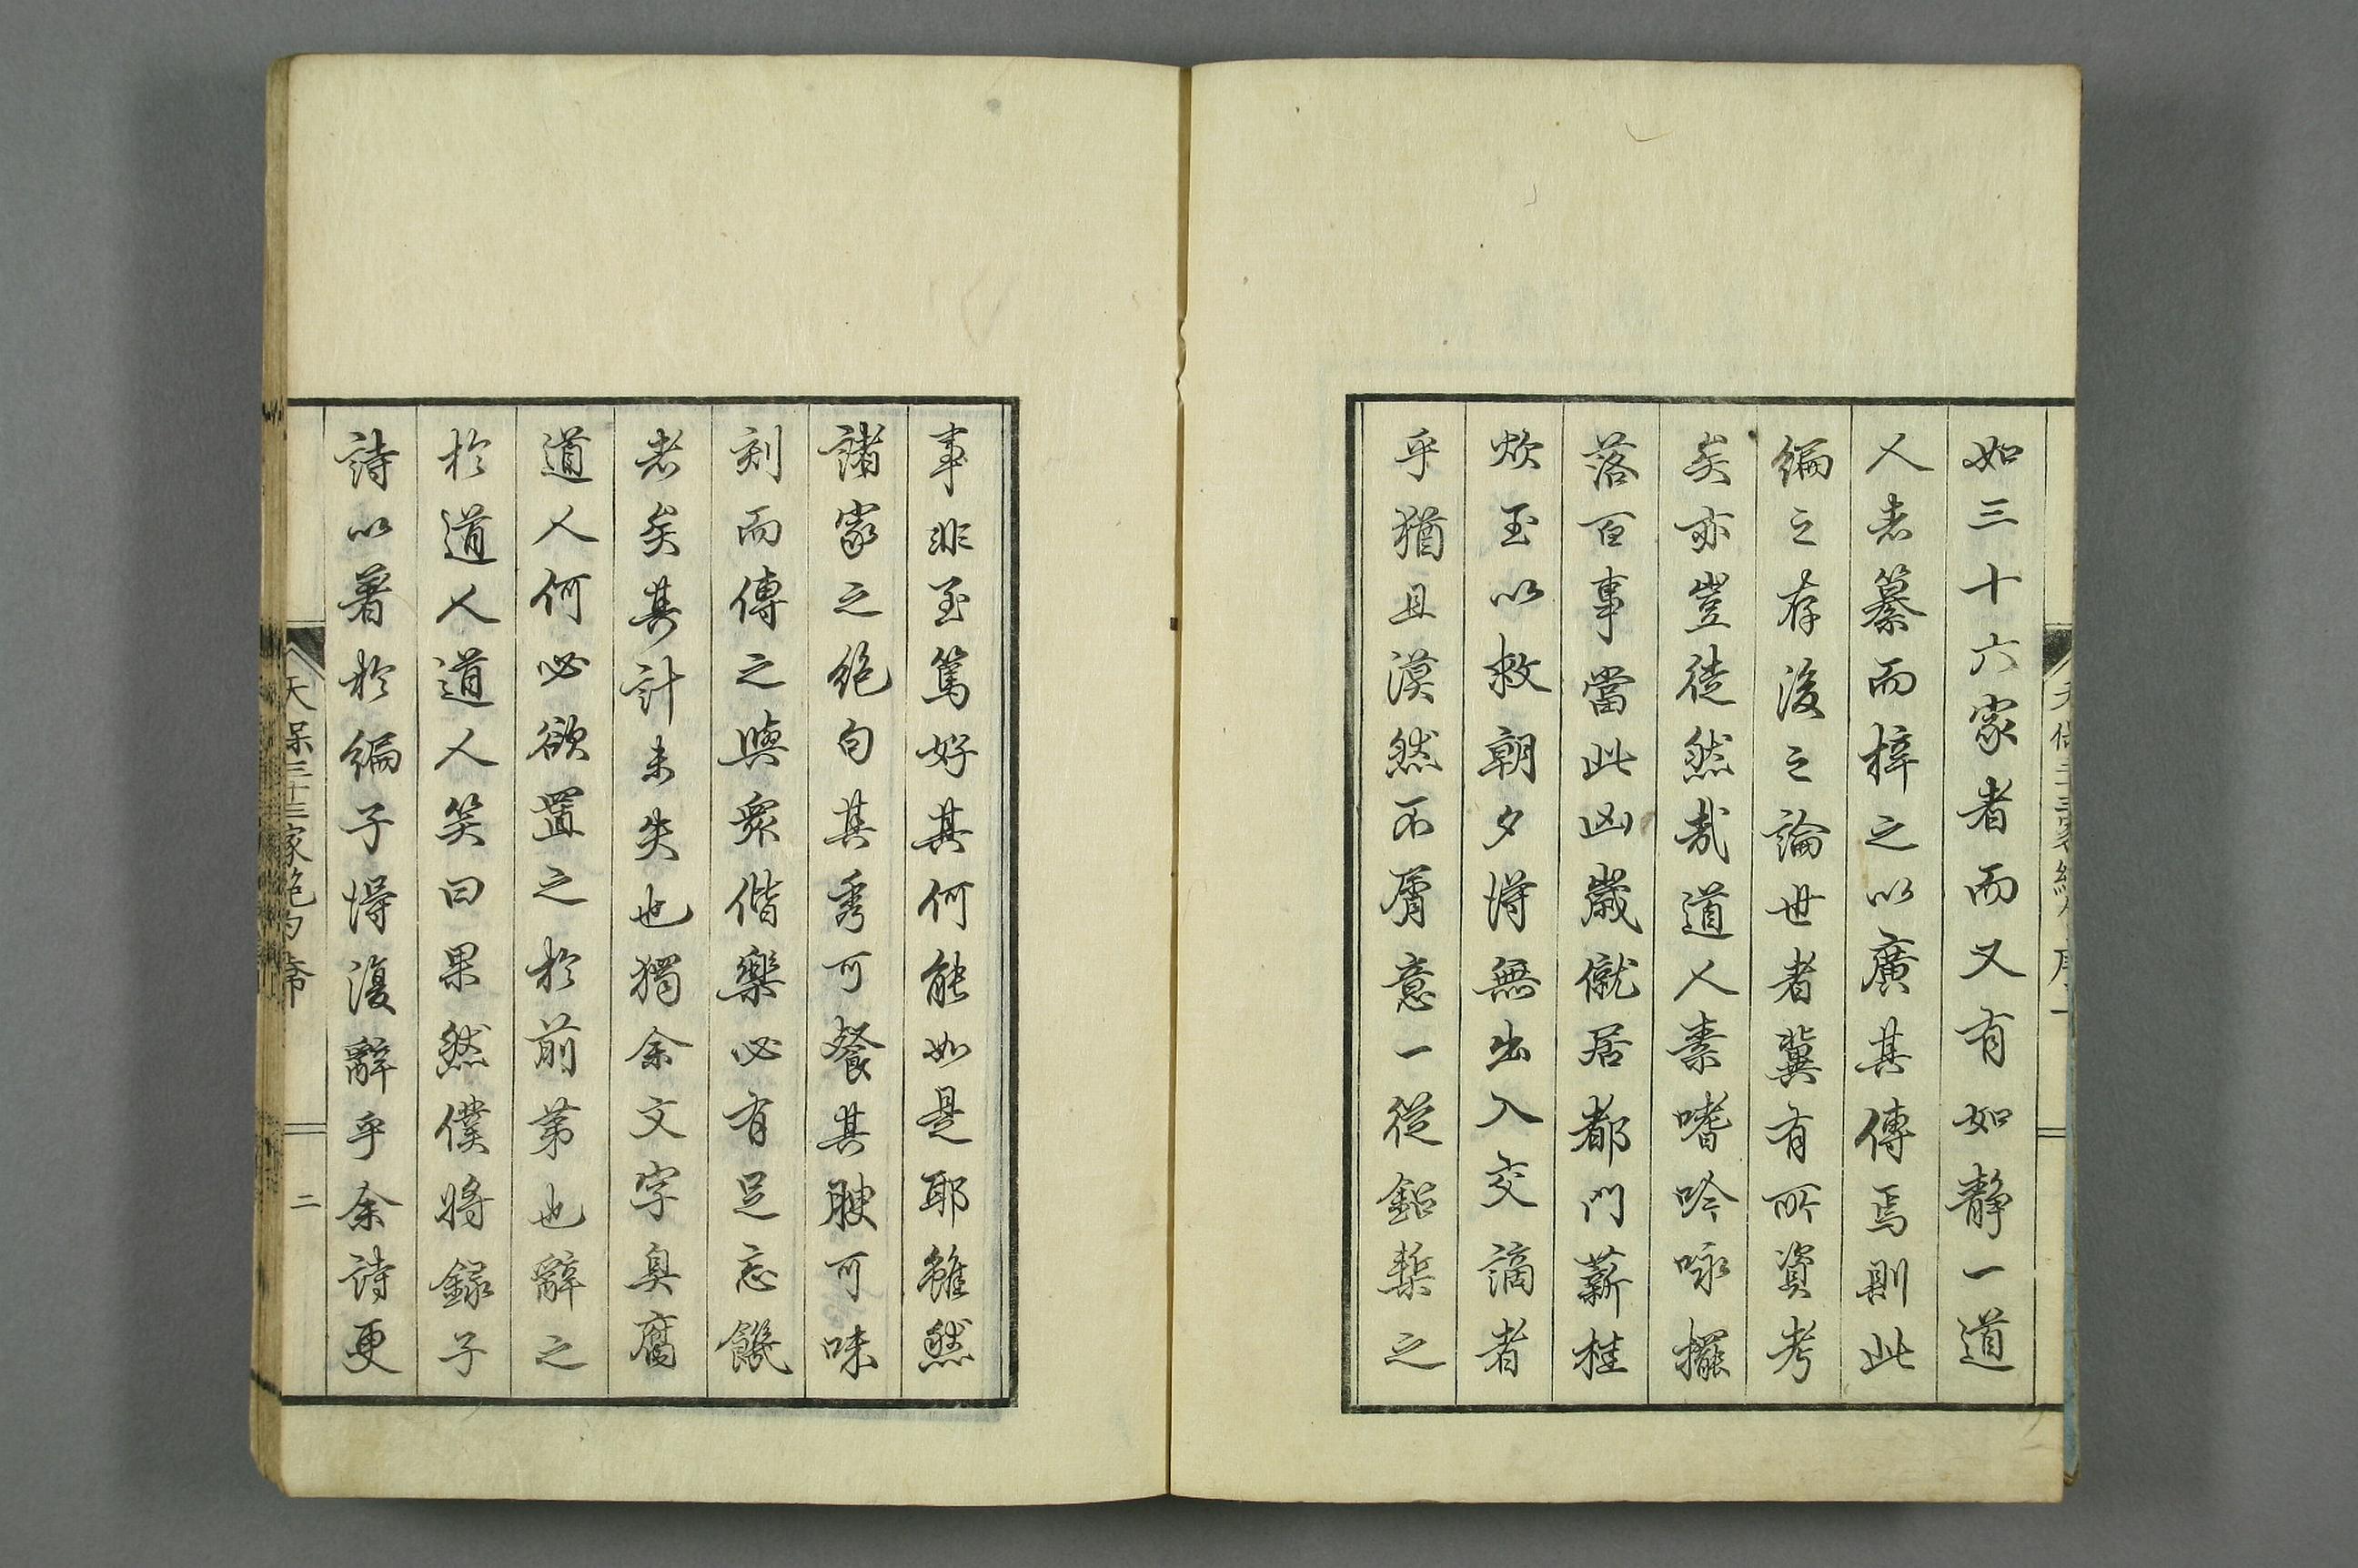 如三十六家者而又有如静一道
人者纂而梓之以廣其傳焉則此
編之存後之論世者冀有所資考
矣亦豈徒然哉道人素嗜吟咏擺
落百事當此凶歳僦居都門薪桂
炊玉以救朝夕得無出入交謫者
乎猶且漠然不屑意一從鉛槧之
事非至篤好其何能如是耶雖然
諸家之絶句其秀可餐其腴可味
刻而傳之與衆偕樂必有足忘饑
者矣其計未失也獨余文字臭腐
道人何必欲置之於前第也辭之
於道人道人笑曰果然僕將録子
詩以著於編子得復辭乎余詩更
天保三十三家絶句序
二